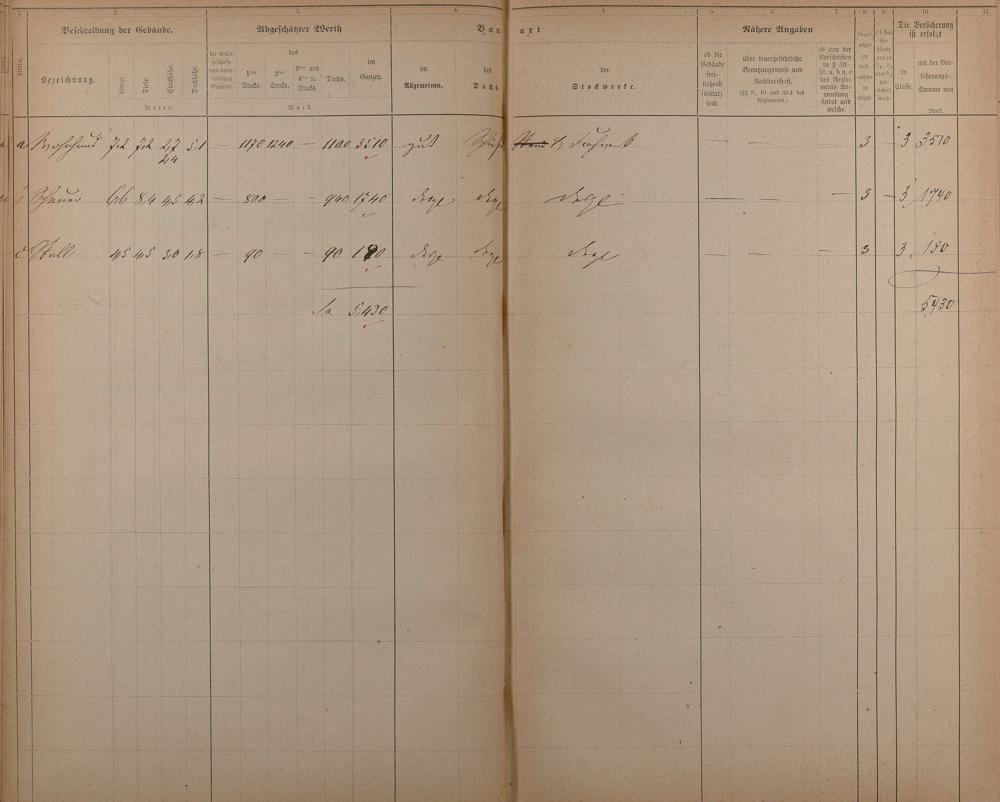 1. 2. 3. 4. 4. 5. 6. 7. 8. 9. 10. 11.
Beschreibung der Gebäude. Abgeschätzter Werth Bau- art Nähere Angaben Die Versicherung ist erfolgt
Bezeichnung. Länge. Tiefe. Stockhöhe. Dachhöhe.
Meter.
des
1ten Stocks. 2ten Stocks. 3ten und 4ten ec. Stocks. Dachs. im Ganzen.
Mark.
im Allgemeinen. des Dachs der Stockwerke.
ob die Gebäude frei-stehend (isolirt) sind.
über feuergefährliche Benutzungsweise und Nachbarschaft.
(§§ 9, 10 und 33 d des Reglements.)
ob eine der Vorschriften in § 33 lit. a, b u. c des Reglements Anwendung findet und welche.
in Classe mit der Versicherungs-Summe von
Mark.
a Wohnhaus 7,2 7,2 2,7 5,1 — 1170 1240 — 1100 3510 gut — — — 3 3 3510
2,4
Scheuer 6,6 8,4 4,5 4,2 — 800 — — 940 1740 desgl desgl desgl — — — 3 — 3 1740
c Stall 4,5 4,5 2,0 1,8 — 90 — — 90 180 desgl desgl desgl — — — 3 3 180
Sa 5430 5430